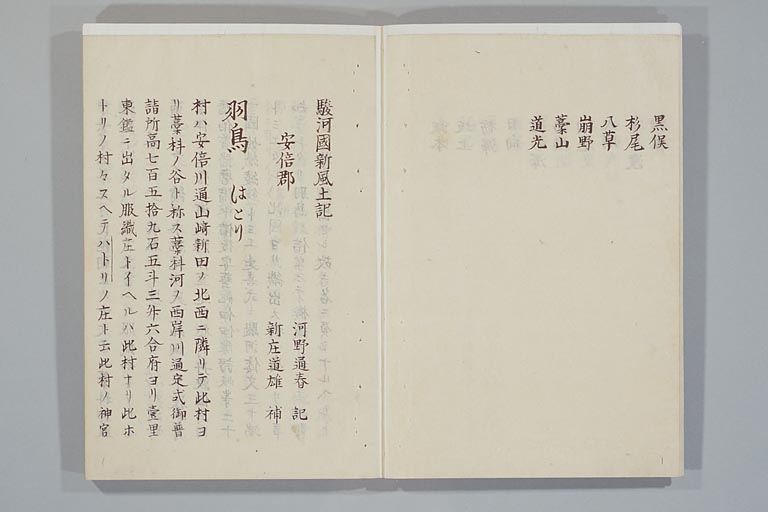 黒俣
杉尾
八草
崩野
藁山
道光
駿河國新風土記
安倍郡
河野通春 記
新庄道雄 補
羽鳥 はとり
村ハ安倍川通山﨑新田ノ北西ニ隣リテ此村ヨ
リ藁科ノ谷ト称ス藁科河ノ西岸川通定式御普
請所高七百五拾九石五斗三升六合府ヨリ壹里
東鑑ニ出タル服織庄トイヘルハ此村ナリ此ホ
トリノ村々スヘテハトリノ庄ト云此村ノ神宮